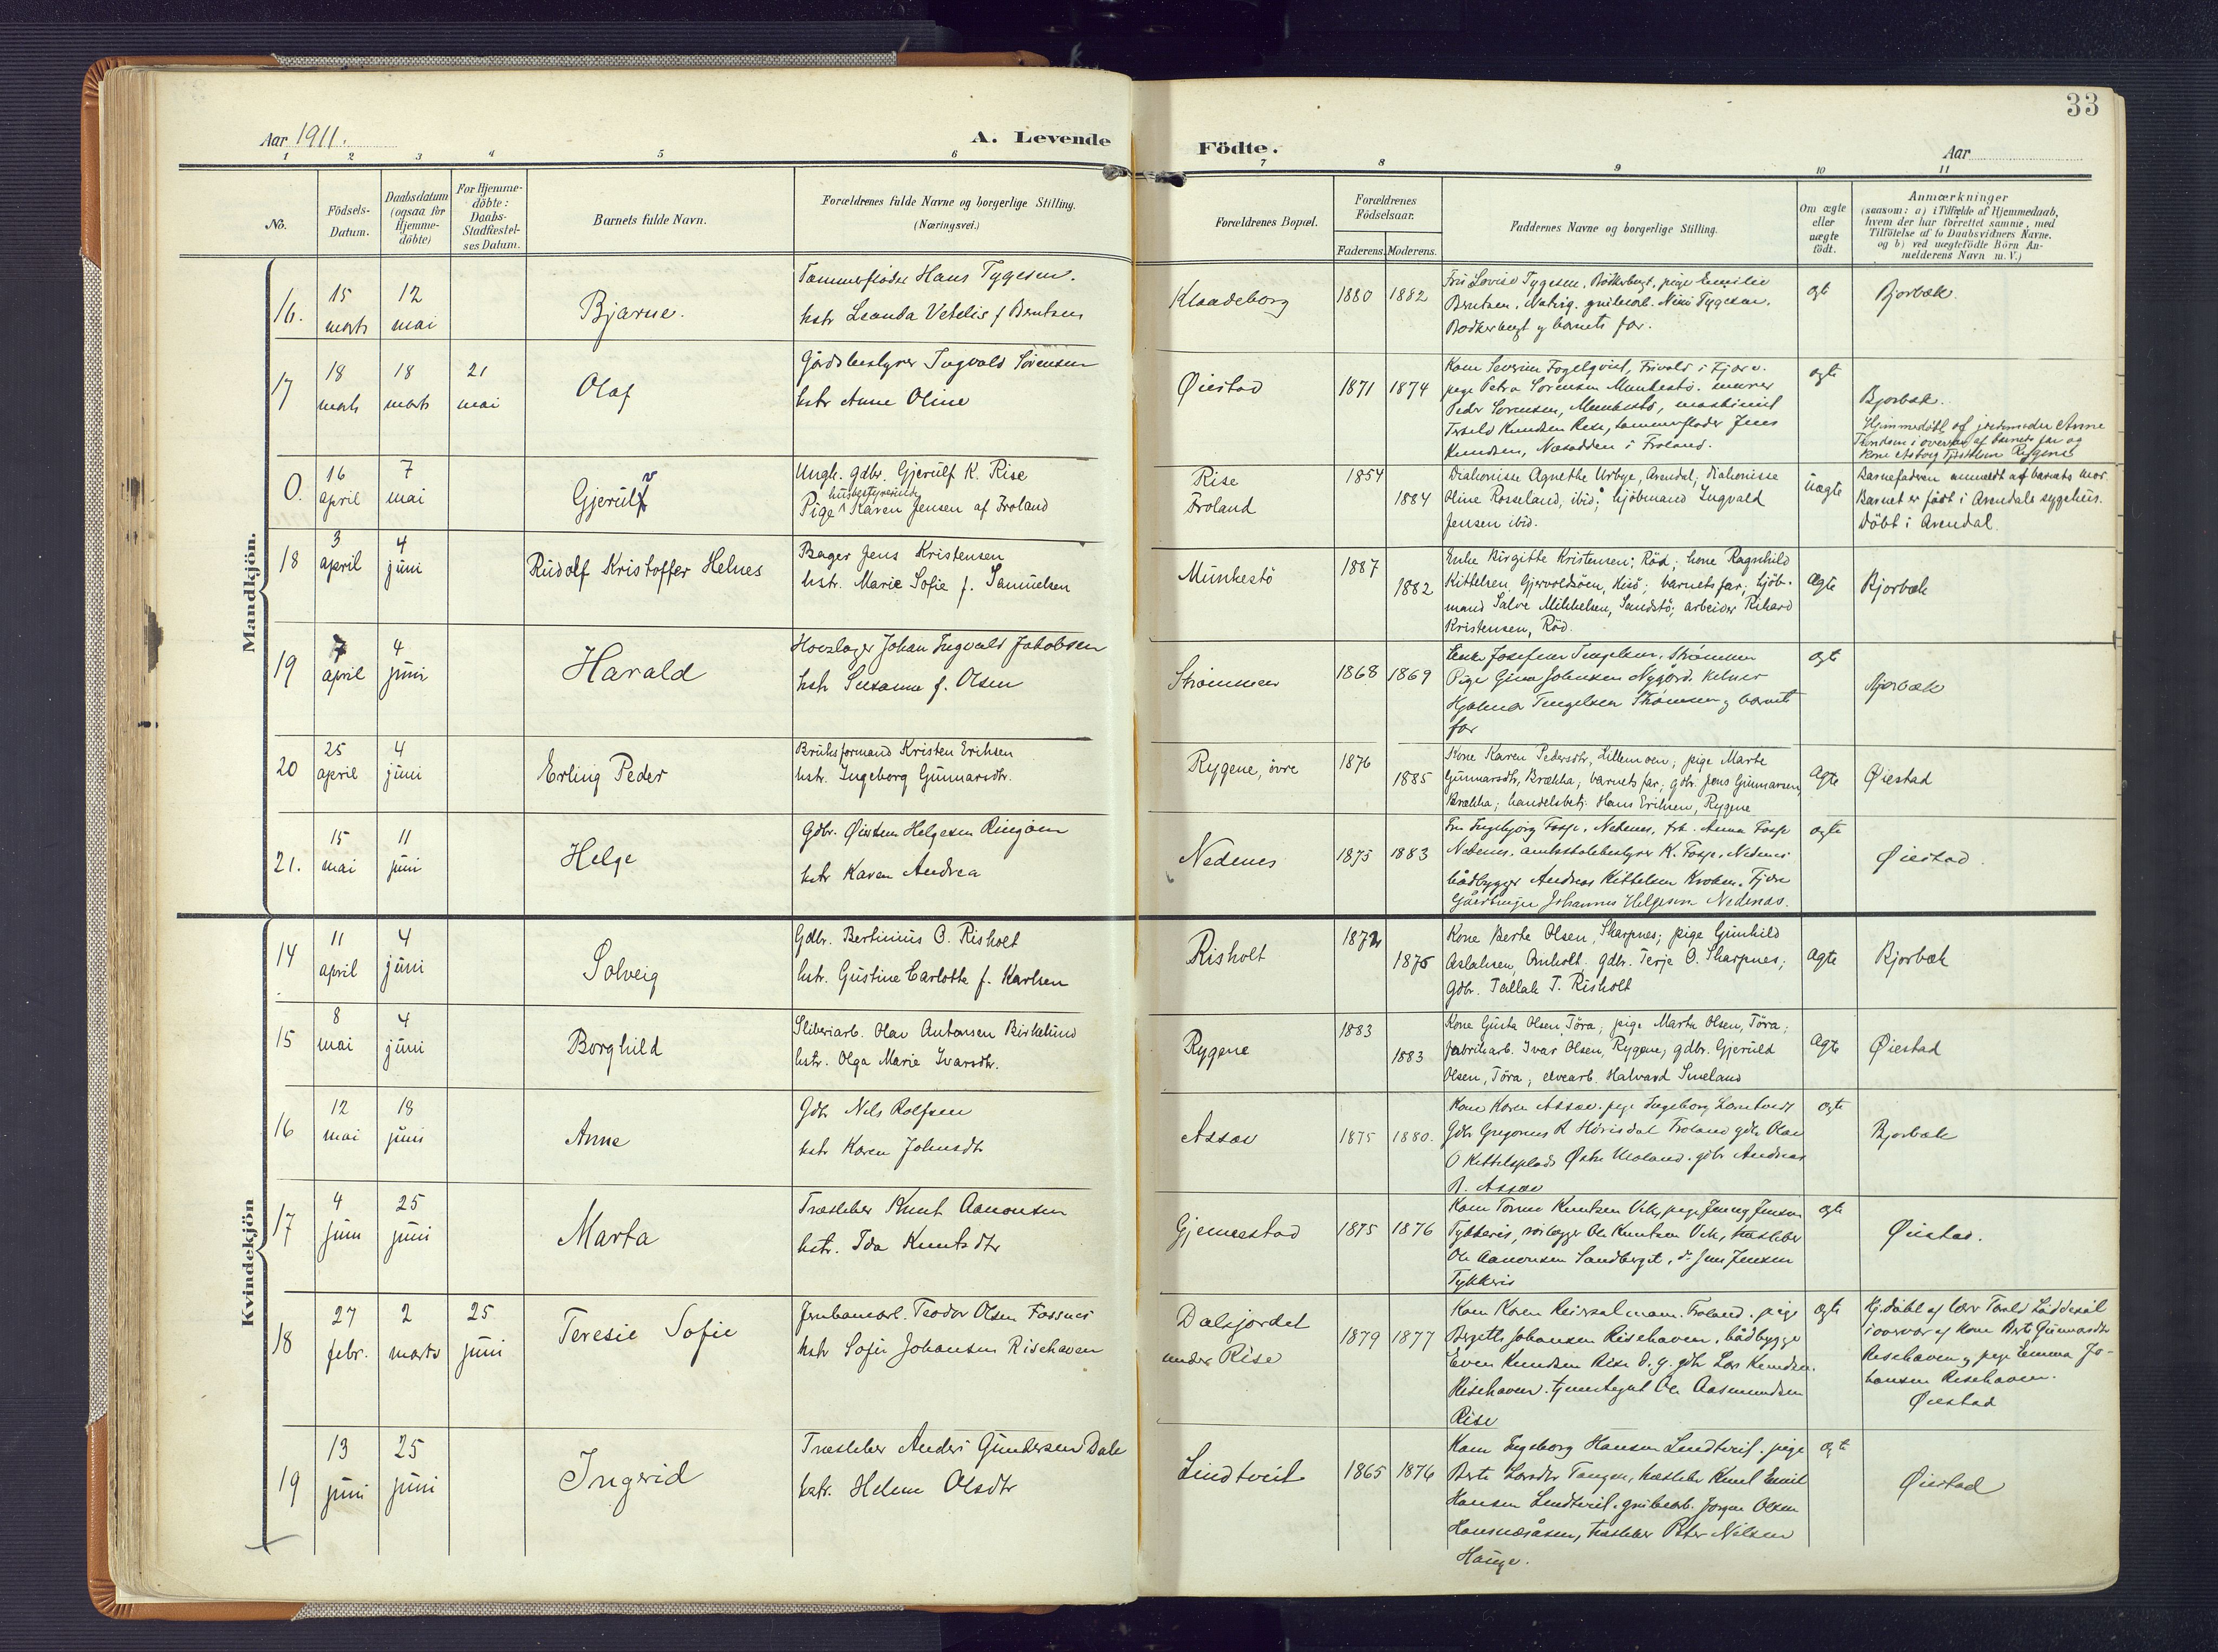 33
Aar 1911.
A. Levende
Födte.
Aar
1 2 3 4 5 6 7 8 9 10 11
No.
Födsels-Datum.
Daabsdatum (ogsaa for Hjemme-döbte)
For Hjemme-döbte: Daabs-Stadfæstel-ses Datum.
Barnets fulde Navn.
Forældrenes fulde Navne og borgerlige Stilling. (Næringsvei.)
Forældrenes Bopæl.
Forældrenes Födselsaar.
Faderens. Moderens.
Faddernes Navne og borgerlige Stilling.
Om ægte eller uægte födt.
Anmærkninger
(saasom: a) i Tilfælde af Hjemmedaab,
hvem der har forrettet samme, med
Tilföielse af to Daabsvidners Navne.
og b) ved uægtefödte Börn An-
melderens Navn m. V.)
Mandkjön.
16. 15 marts 12 mai Bjarne.
Tømmerfløder Hans Tygesen.
hstr Leonda Vetelis f Berntsen
Klaadeborg 1880 1882
Fru Lovise Tygesen, pige Emilie
Berntsen, Natvig. grubearb. Nini Tygesen.
og barnets far.
ægt Bjorbæk.
17 18 marts 18 marts 21 mai Olaf
Gårdsbestyrer Ingvald Sørensen
hstr Anne Oline
Øiestad 1871 1874
Kone Severine Fogelqvist, i Fjære.
pige Petra Sørensen Munkestø. murer
Peder Sørensen, Munkestø, maskinist
Terkeld Knudsen Rise, tømmerfløder Jens
Knudsen, Næsodden i Froland.
ægte
Bjorbæk.
Hjemmedöbt af jordmoder Anne
i overvær af barnets far og
kone Rygene
0. 16 april 7 mai Gjerulf v
Ungk. gdbr. Gjerulf K. Rise
husbestyrerinde
Pige Karen Jensen af Froland
Rise
Froland
1854 1884
Diakonisse Agnethe Urbye, Arendal; diakonisse
Oline Rosseland, ibid; kjöbmand Ingvald
Jensen ibid.
uægte
Barnefaderen anmeldt af barnets mor.
Barnet er födt i Arendals sygehus.
Döbt i Arendal.
18 3 april 4 juni Rudolf Kristoffer Helnes
Bager Jens Kristensen
hstr. Marie Sofie f. Samuelsen
Munkestö 1887 1882
Enke Birgitte Kristensen; Röd; kone Ragnhild
Kittelsen Gjervoldsöen, Hisö; barnets far; kjöb-
mand Salve Mikkelsen, Sandstö; arbeider Rikard
Kristensen, Röd.
Ægte Bjorbæk
19 7 april 4 juni Harald
Hovslager Johan Ingvald Jakobsen
hstr Susanne f. Olsen
Strømmen 1868 1869
Enke Josefine Tengelsen, Strømmen
Pige Gina Johnsen Nygård. Kelner
Hjalmar Tengelsen Strømmen og barnets
far
ægte Bjorbæk
20 25 april 4 juni Erling Peder
Bruksformand Kristen Eriksen
hstr. Ingeborg Gunnarsdtr.
Rygene, övre 1876 1885
Kone Karen Pedersdtr, Lillemoen; pige Marte
Gunnarsdtr, Brækka; barnets far; gdbr. Jens Gunnarsen,
Brækka; handelsbetj. Hans Eriksen, Rygene
Ægte Øiestad
21. 15 mai 11 juni Helge
Gdbr. Øistein Helgesen Ringøen
hstr Karen Andrea
Nedenes 1875 1883
Fru Ingebjørg Fosse, Nedenes, frk. Anna Fosse
Nedenes. amtsskolebestyrer K. Fosse, Nedenes
bådbygger Andreas Kittelsen Kroken, Fjære
Johannes Helgesen Nedenæs.
ægte Øiestad.
Kvindekjön
14 11 april 4 juni Solveig
Gdbr. Bertinius O. Risholt
hstr. Gustine Carlotte f. Karlsen
Risholt 1872 1875
Kone Berte Olsen, Skarpnes; pige Gunhild
Aslaksen, Omholt. gdbr. Terje O. Skarpnes;
Gdbr. Tallak T. Risholt
Ægte Bjorbæk
15 8 mai 4 juni Borghild
Sliberiarb. Olav Antonsen Birkelund
hstr. Olga Marie Ivarsdtr.
Rygene 1883 1883
Kone Gusta Olsen, Töra; pige Marta Olsen, Töra;
fabrikarb. Ivar Olsen, Rygene; gdbr. Gjeruld
Olsen, Töra; elvearb. Halvard Smeland
Ægte Øiestad
16 12 mai 18 juni Anne
Gdbr Nils Rolfsen
hstr Karen Johnsdtr
Assav 1875 1880.
Kone Karen Assav. pige Ingeborg
Gdbr Gregorius R Hörisdal Froland gdbr Olav
O Kittelsplads Østre Moland. gdbr Andreas
N. Assav
ægte Bjorbæk
17 4 juni 25 juni Marta
Træsleber Knut Aanonsen
hstr. Ida Knutsdtr
Gjennestad 1875 1876
Kone Torine Knutsen Vik, pige Jenny Jensen
Tykkeris, Ole Knutsen Vik, træsleber
Ole Aanonsen Sandberget, d. Jens Jensen
Tykkeris
ægte Øiestad.
18 27 febr. 2 marts 25 juni Teresie Sofie
Jernbanearb. Teodor Olsen Fossnes
hstr Sofie Johansen Risehaven
Dalsjordet
under Rise
1879 1877
Kone Karen Reiersølmoen. Froland. pige
Bergette Johansen Risehaven, bådbygger
Even Knudsen Rise d. y. gdbr Lars Knudsen.
Risehaven. tjenestegut Ole Aasmundsen
Rise
ægte
Hj. döbt af lærer Tarald Løddesøl
i overvær af kone Berte Gunnarsdtr
Risehaven og pige Emma Jo-
hansen Risehaven.
Øiestad
19 13 juni 25 juni Ingerid
Træsleber Anders Gundersen Dale
hstr. Helene Olsdtr
Lindtveit 1865 1876
Kone Ingeborg Hansen Lindtveit. pige
Berte Larsdtr Tangen, træsleber Knut Emil
Hansen Lindtveit, grubearb. Jørgen Olsen
træsleber Peter Nilsen
Hauge.
ægte Øiestad